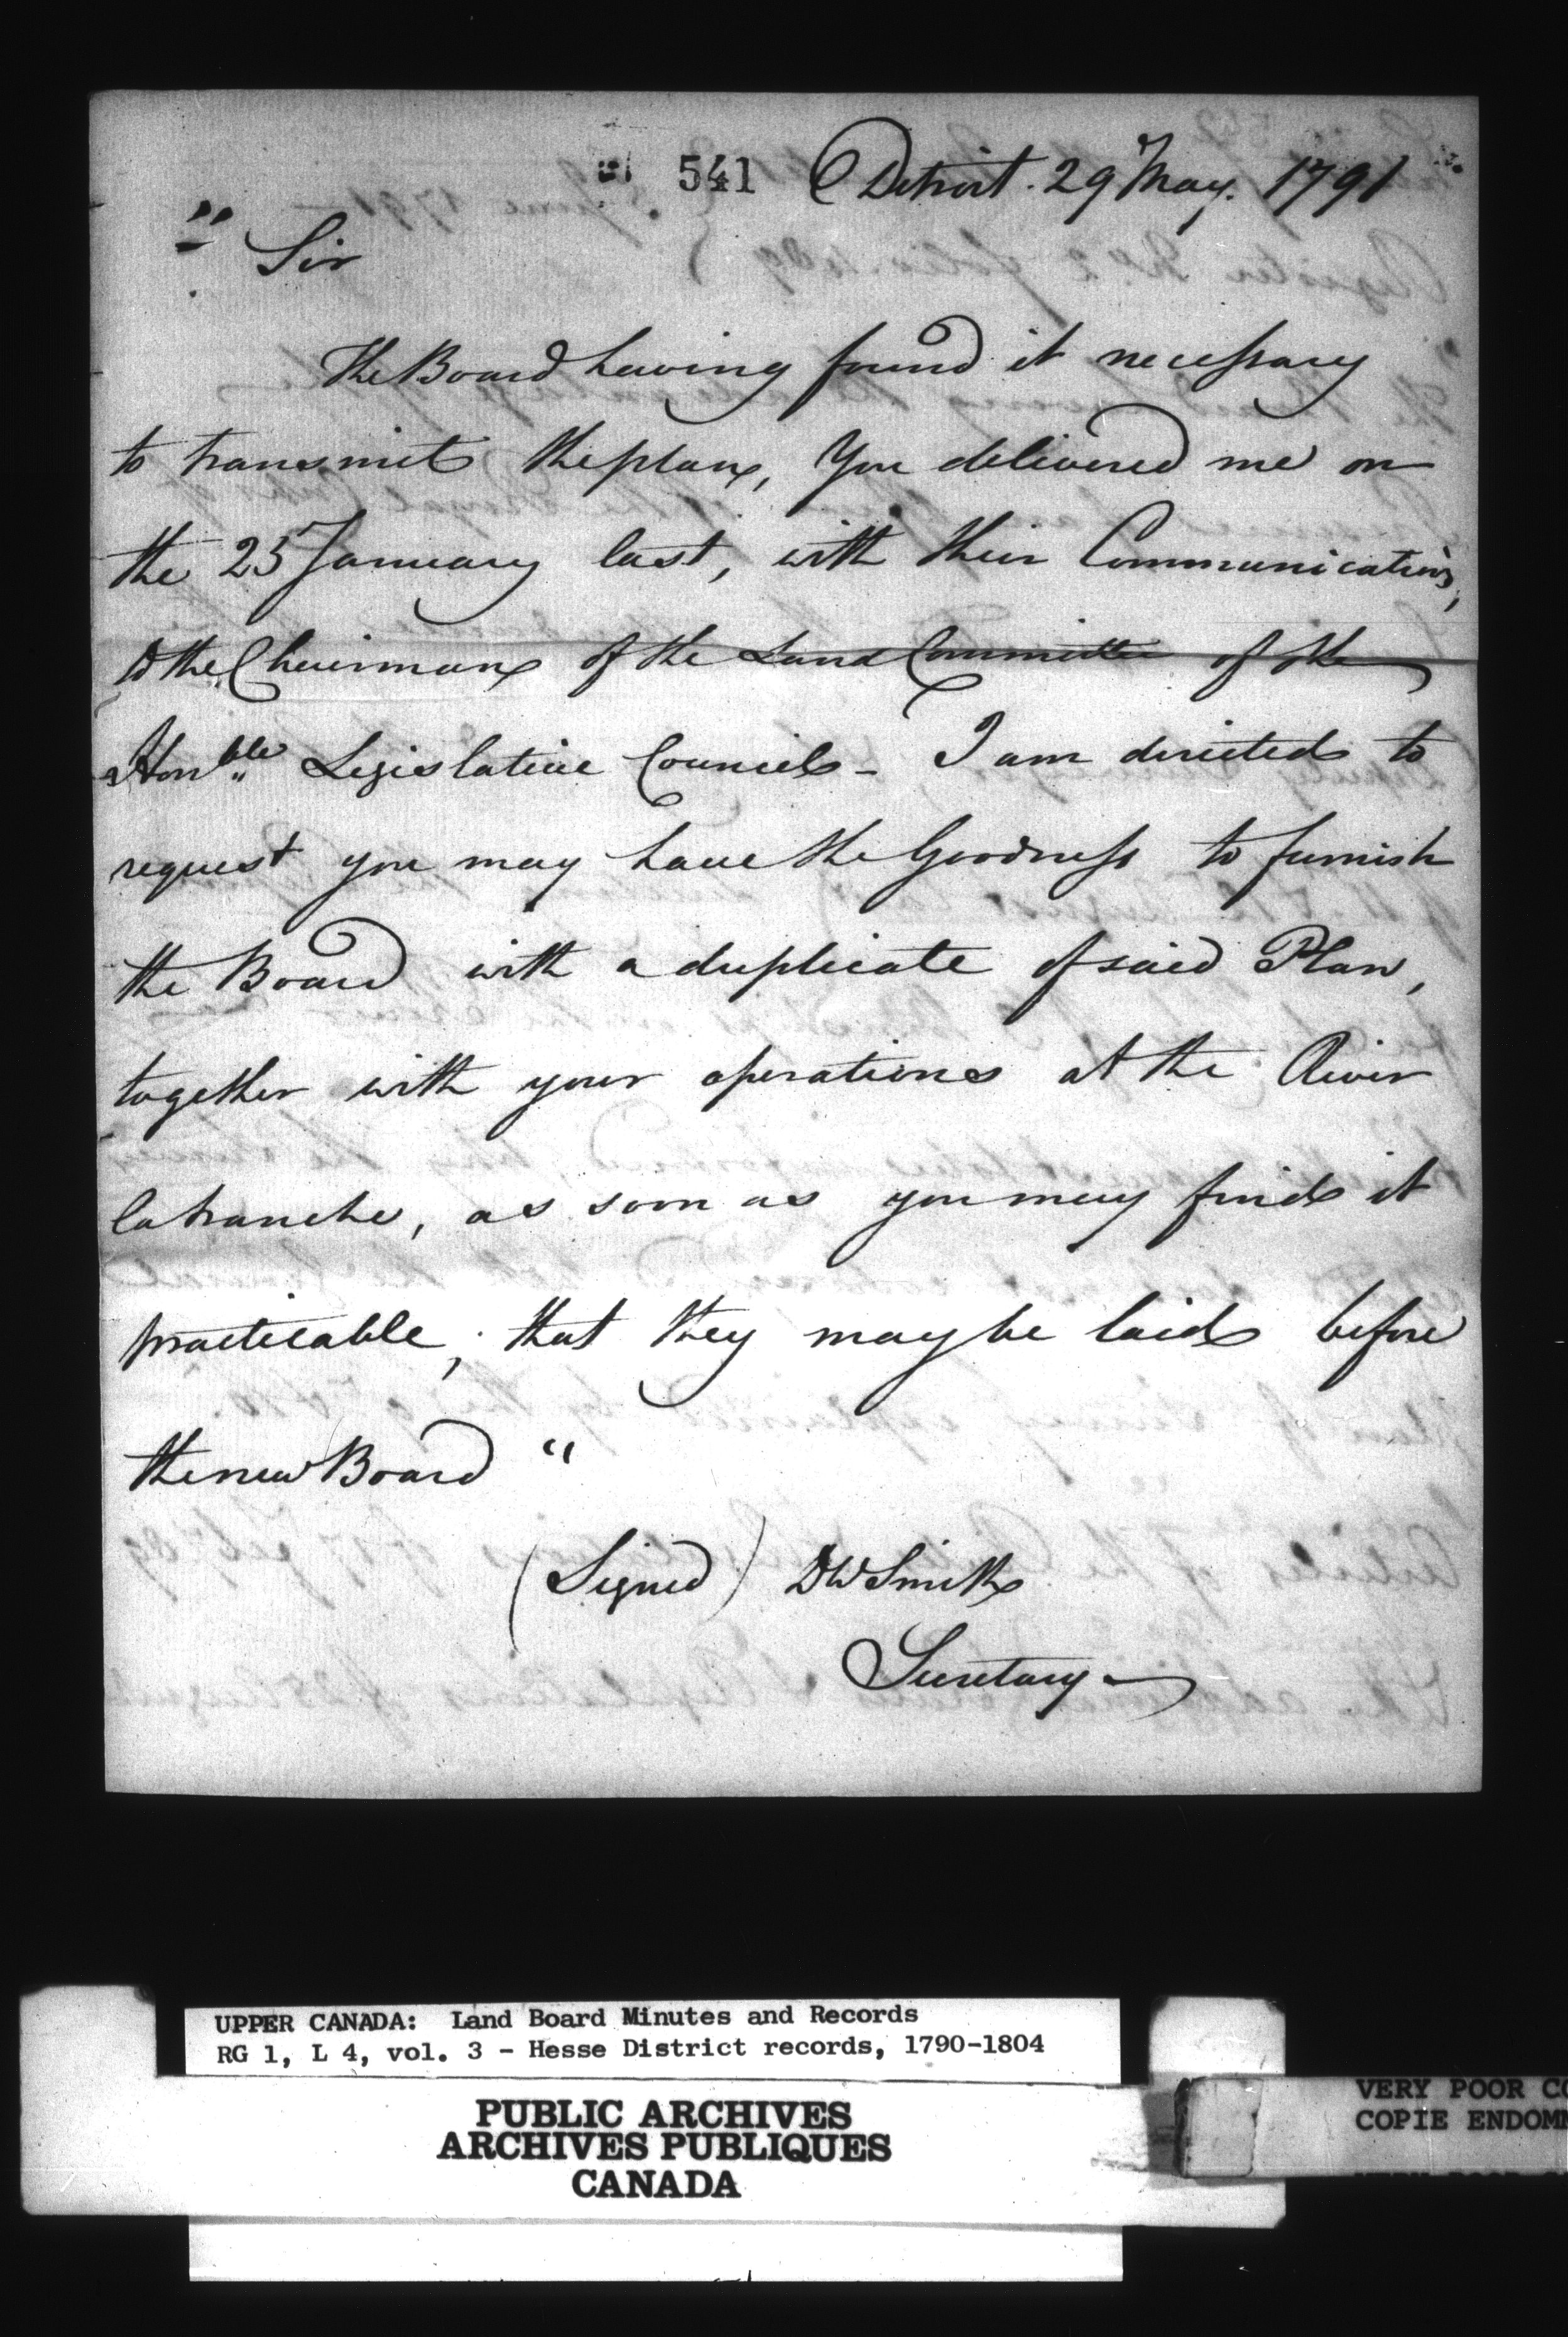 541 Detroit. 29 May. 1791
" Sir
The Board having found it necessary
to transmit the plan, You delivered me on
the 25 January last, with their Communications,
to the Chairman of the Land Committee of the
Honble Legislative Council - I am directed to
request you may have the Goodness to furnish
the Board with a duplicate of said Plan,
together with your operations at the River
latranche, as soon as you may find it
practicable; that they may be laid before
the new Board "
(Signed) DW Smith
Secretary
UPPER CANADA: Land Board Minutes and Records
RG 1, L 4, vol. 3 - Hesse District records, 1790-1804
PUBLIC ARCHIVES
ARCHIVES PUBLIQUES
CANADA
VERY POOR CO
COPIE ENDOMM